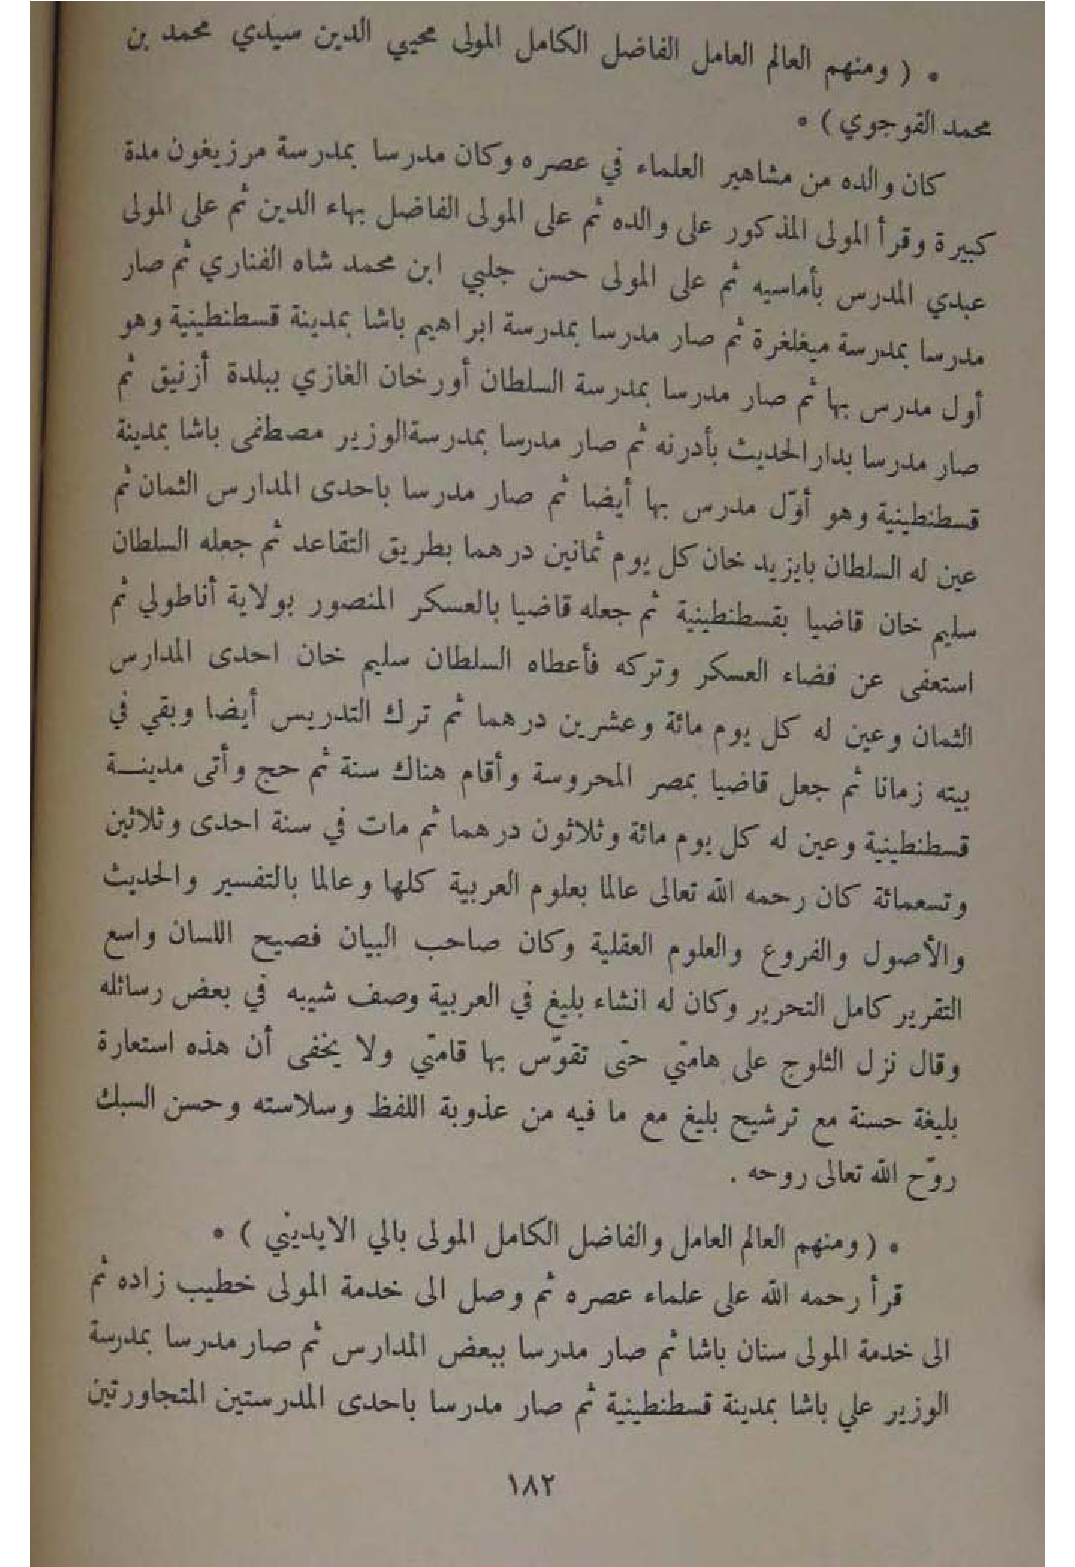 * ( ومنهم العالم العامل الفاضل الكامل المولى محيي الدين سيدي محمد بن
محمد القوجوي ) *
كان والده من مشاهير العلماء في عصره وكان مدرسا بمدرسة مرزيغون مدة
كبيرة وقرأ المولى المذكور على والده ثم على المولى الفاضل بهاء الدين ثم على المولى
عبدي المدرس بأماسيه ثم على المولى حسن جلبي ابن محمد شاه الفناري ثم صار
مدرسا بمدرسة ميغلغرة ثم صار مدرسا بمدرسة ابراهيم باشا بمدينة قسطنطينية وهو
أول مدرس بها ثم صار مدرسا بمدرسة السلطان أورخان الغازي ببلدة أزنيق ثم
صار مدرسا بدار الحديث بأدرنه ثم صار مدرسا بمدرسة الوزير مصطفى باشا بمدينة
قسطنطينية وهو أوّل مدرس بها أيضا ثم صار مدرسا باحدى المدارس الثمان ثم
عين له السلطان بايزيد خان كل يوم ثمانين درهما بطريق التقاعد ثم جعله السلطان
سليم خان قاضيا بقسطنطينية ثم جعله قاضيا بالعسكر المنصور بولاية أناطولي ثم
استعفى عن قضاء العسكر وتركه فأعطاه السلطان سليم خان احدى المدارس
الثمان وعين له كل يوم مائة وعشرين درهما ثم ترك التدريس أيضا وبقي في
بيته زمانا ثم جعل قاضيا بمصر المحروسة وأقام هناك سنة ثم حج وأتى مدينـــة
قسطنطينية وعين له كل يوم مائة وثلاثون درهما ثم مات في سنة احدى وثلاثين
وتسعمائة كان رحمه الله تعالى عالما بعلوم العربية كلها وعالما بالتفسير والحديث
والأصول والفروع والعلوم العقلية وكان صاحب البيان فصيح اللسان واسع
التقرير كامل التحرير وكان له انشاء بليغ في العربية وصف شيبه في بعض رسائله
وقال نزل الثلوج على هامتي حتى تقوّس بها قامتي ولا يخفى أن هذه استعارة
بليغة حسنة مع ترشيح بليغ مع ما فيه من عذوبة اللفظ وسلاسته وحسن السبك
روّح الله تعالى روحه .
* ( ومنهم العالم العامل والفاضل الكامل المولى بالي الايديني ) *
قرأ رحمه الله على علماء عصره ثم وصل الى خدمة المولى خطيب زاده ثم
الى خدمة المولى سنان باشا ثم صار مدرسا ببعض المدارس ثم صار مدرسا بمدرسة
الوزير علي باشا بمدينة قسطنطينية ثم صار مدرسا باحدى المدرستين المتجاورتين
١٨٢